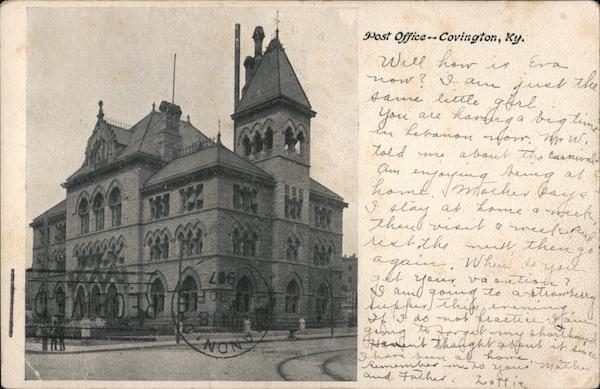 Post Office — Covington, Ky.
Well how is Eva
now? I am just the
same little girl.
You are having a big time
in Lebanon now. Mr W.
told me about the carnival.
Am enjoying being at
home. Mother says
I stay at home a week
then visit a week and
rest the next then go
again. When do you
get your vacation?
I am going to a strawberry
supper this evening.
If I do not practice I am
going to forget my shorthand
Haven't thought about it since
I have been at home.
Remember me to your Mother
and Father. Lottie
907